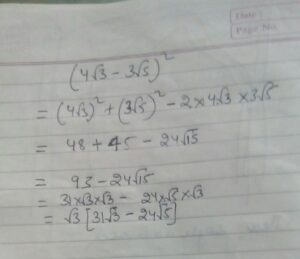 Date:
Page No.
(4√3 - 3√5)²
= (4√3)² + (3√5)² - 2×4√3 ×3√5
= 48 + 45 - 24√15
= 93 - 24√15
= 31×√3×√3 - 24×√5×√3
= √3 [31√3 - 24√5]